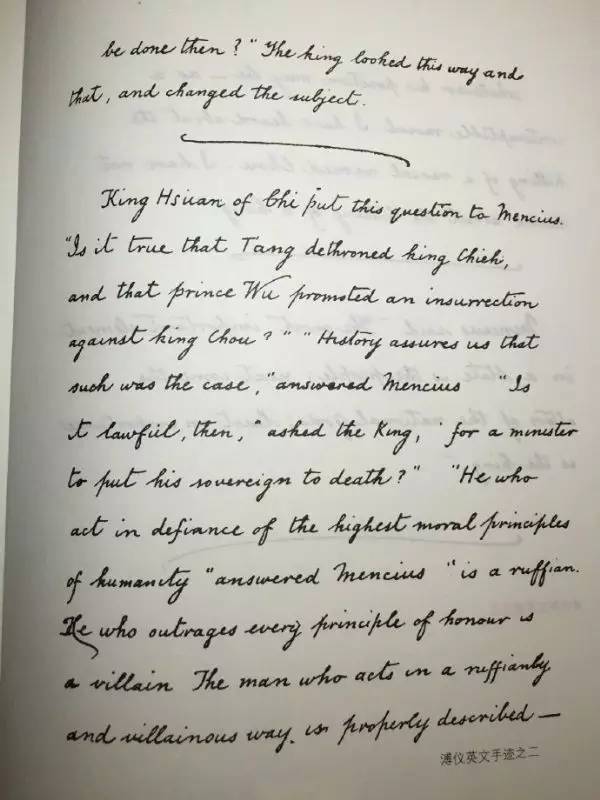 be done then?" The king looked this way and
that, and changed the subject.
King Hsüan of Chi put this question to Mencius.
"Is it true that Tang dethroned king Chieh,
and that prince Wu promoted an insurrection
against king Chou?" "History assures us that
such was the case," answered Mencius "Is
it lawful, then," asked the King, "for a minister
to put his sovereign to death?" "He who
act in defiance of the highest moral principles
of humanity" answered Mencius "is a ruffian.
He who outrages every principle of honour is
a villain The man who acts in a ruffianly
and villainous way. is properly described —
溥仪英文手迹之二